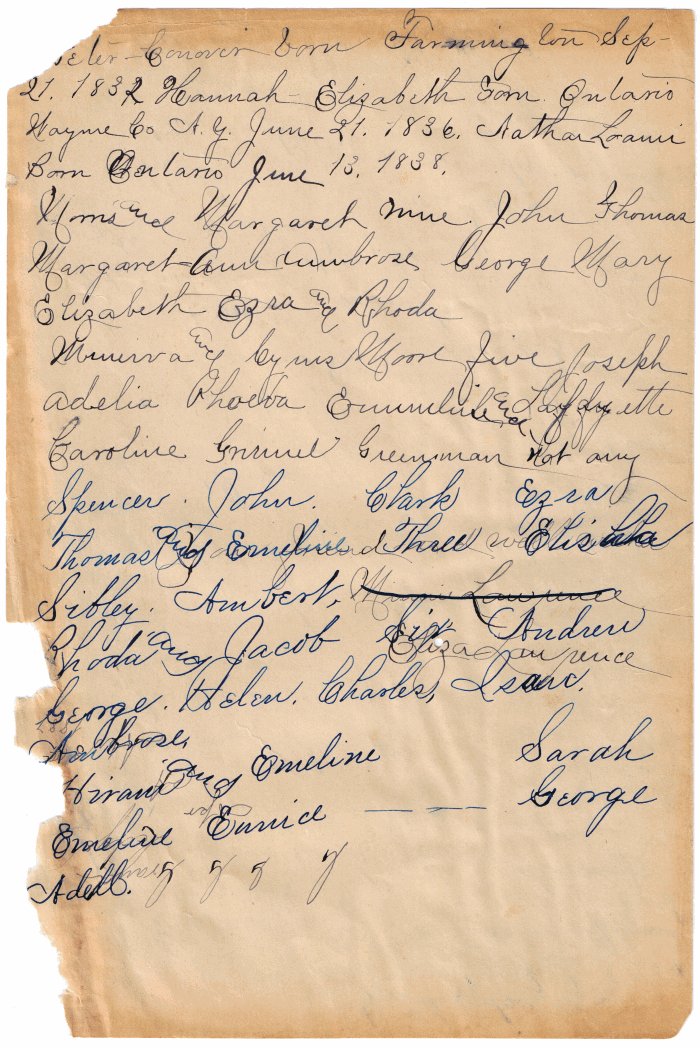 Peter Conover born Farmington Sep-
21. 1832 Hannah Elizabeth born. Ontario
Wayne Co N. Y. June 21. 1836. Nathan Loami
Born Ontario June 13, 1838.
Morris and Margaret nine. John Thomas
Margaret Ann Ambrose George Mary
Elizabeth Ezra and Rhoda
Minerva and Cyrus Moore five Joseph
Adelia Phoeba Emmeline and Laffyette
Caroline Greenman Not any
Spencer. John. Clark Ezra
Thomas and Emeline Three Elisha
Sibley. Ambert. Lawrence
Rhoda and Jacob Six Andrew
Eliza Lawrence
George. Helen. Charles, Isaac.
Ambrose.
Hiram and Emeline Sarah
George
Emeline Eunice — — —
Adell.